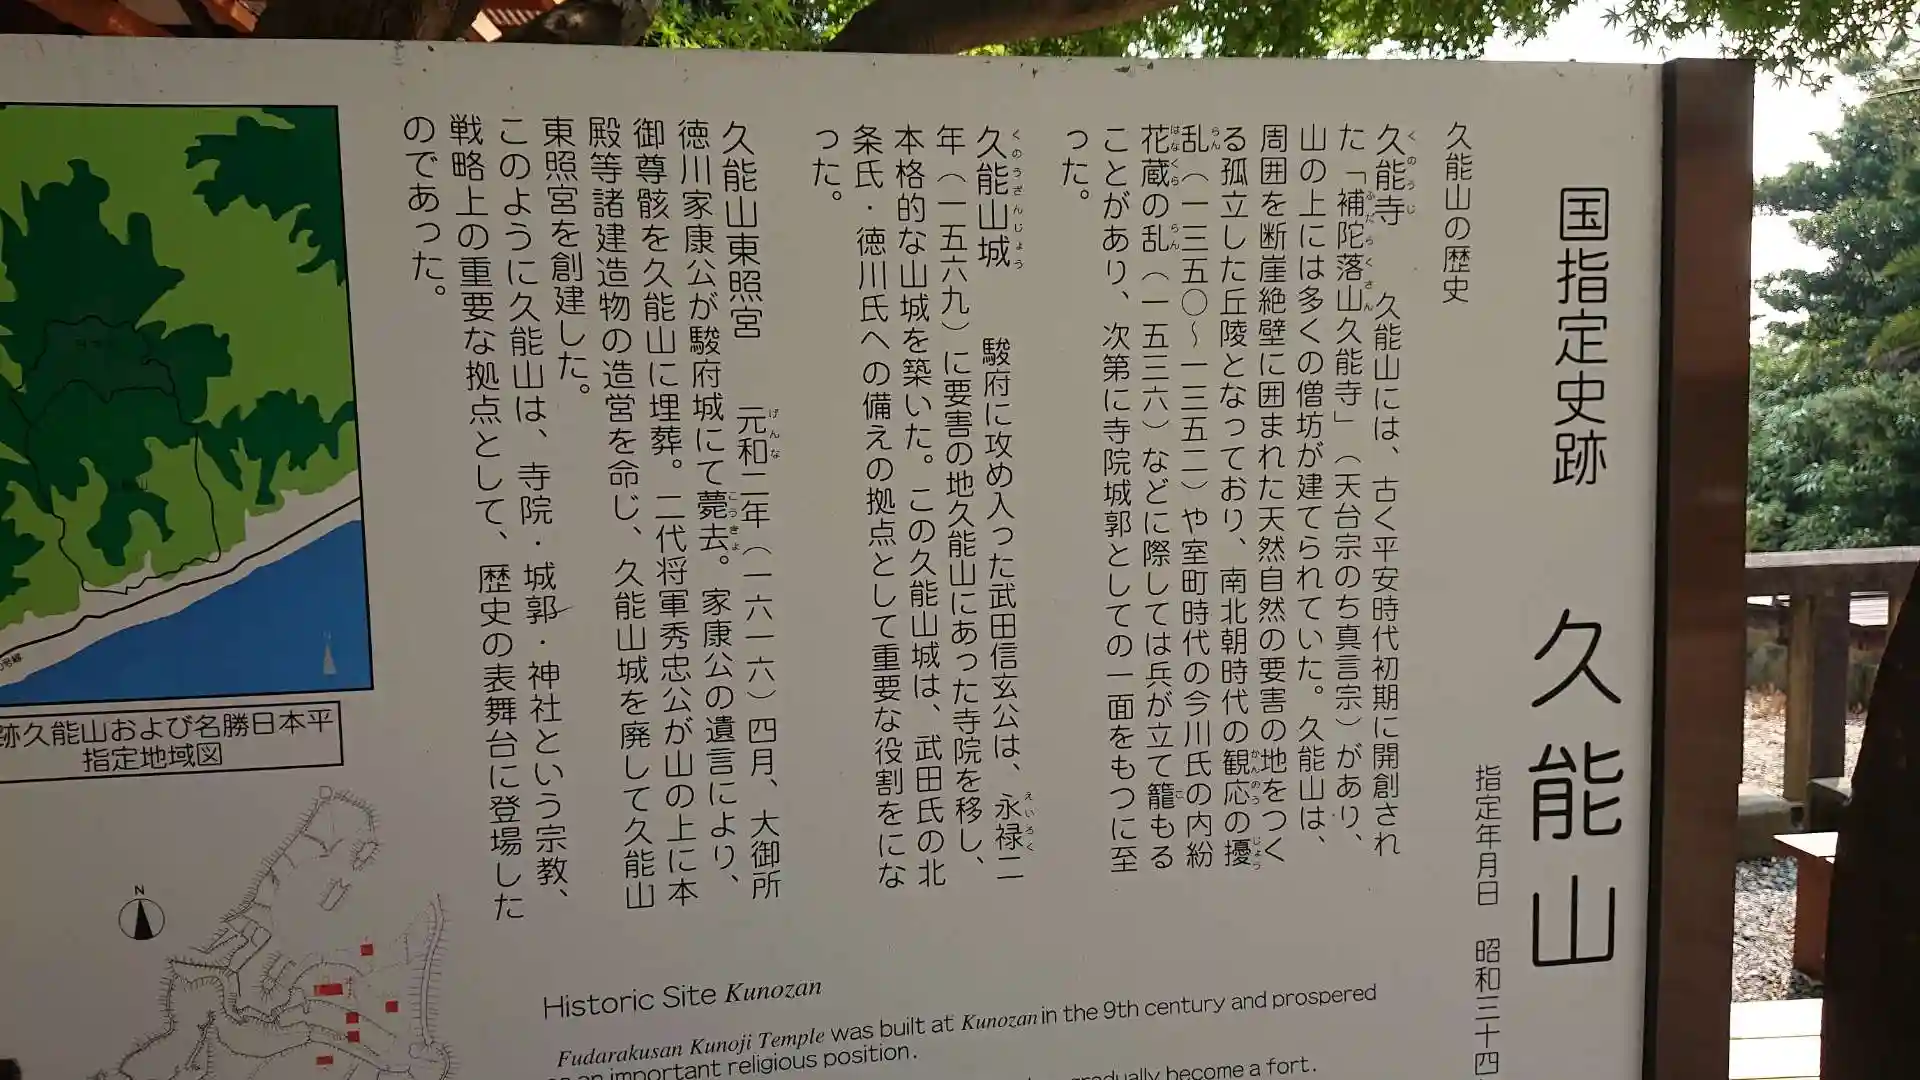 国指定史跡 久能山
指定年月日 昭和三十四
久能山の歴史
久能寺 久能山には、古く平安時代初期に開創され
た「補陀落山久能寺」（天台宗のち真言宗）があり、
山の上には多くの僧坊が建てられていた。久能山は、
周囲を断崖絶壁に囲まれた天然自然の要害の地をつく
る孤立した丘陵となっており、南北朝時代の観応の擾
乱（一三五〇～一三五二）や室町時代の今川氏の内紛
花蔵の乱（一五三六）などに際しては兵が立て籠もる
ことがあり、次第に寺院城郭としての一面をもつに至
った。
久能山城 駿府に攻め入った武田信玄公は、永禄二
年（一五六九）に要害の地久能山にあった寺院を移し、
本格的な山城を築いた。この久能山城は、武田氏の北
条氏・徳川氏への備えの拠点として重要な役割をにな
った。
久能山東照宮 元和二年（一六一六）四月、大御所
徳川家康公が駿府城にて薨去。家康公の遺言により、
御尊骸を久能山に埋葬。二代将軍秀忠公が山の上に本
殿等諸建造物の造営を命じ、久能山城を廃して久能山
東照宮を創建した。
このように久能山は、寺院・城郭・神社という宗教、
戦略上の重要な拠点として、歴史の表舞台に登場した
のであった。
跡久能山および名勝日本平
指定地域図
N
Historic Site Kunozan
Fudarakusan Kunoji Temple was built at Kunozan in the 9th century and prospered
as an important religious position.
gradually become a fort.